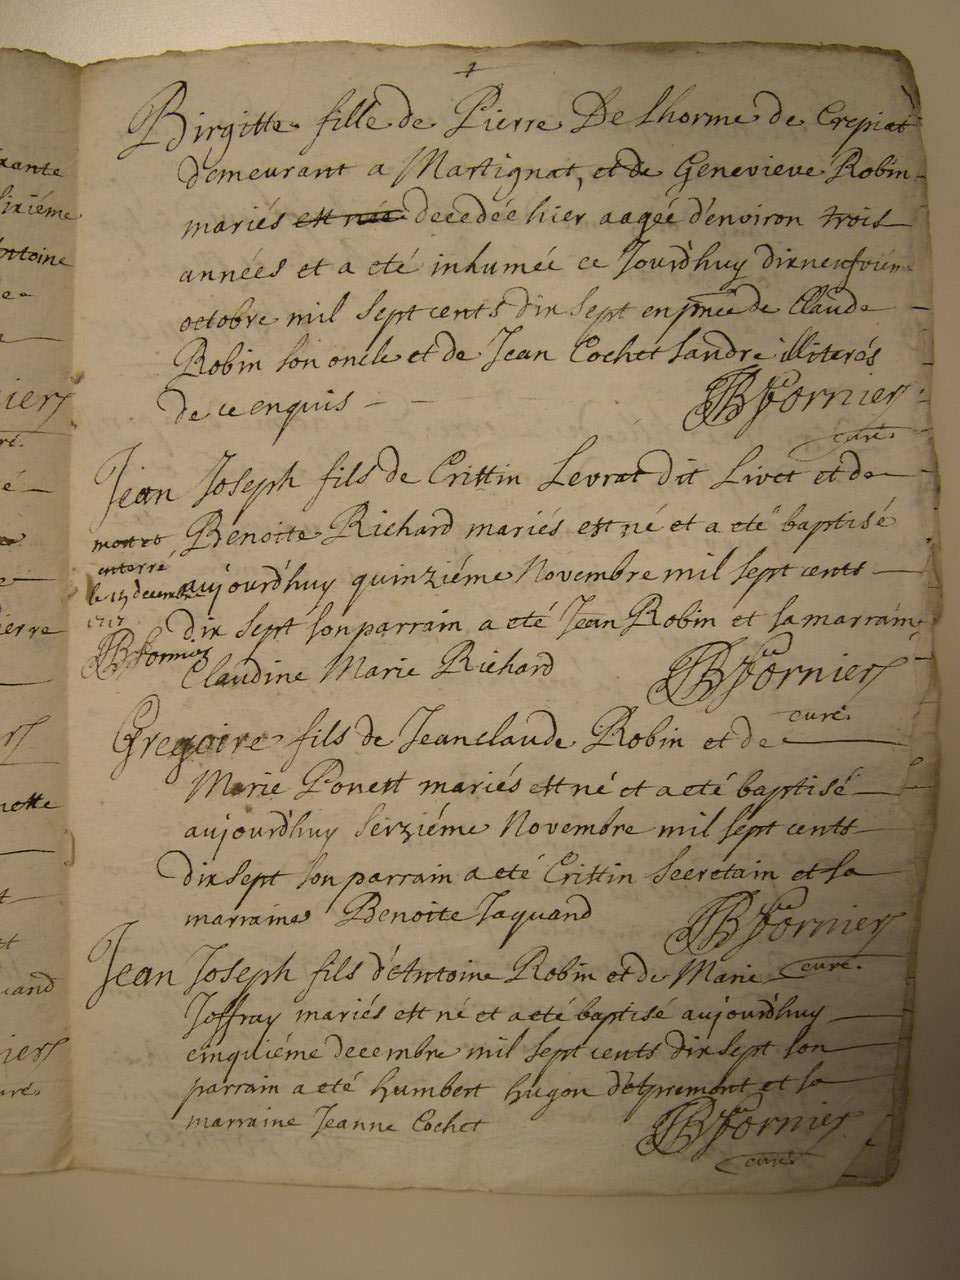 Birgitte fille de Pierre De Lhorme de Crepiat
demeurant a Martignat, et de Genevieve Robin
mariés est née decedée hier aagée d'environ trois
années et a eté inhumée ce Jourd'huy dixneufviém
octobre mil sept cents dix sept en pnce de Claude
Robin son oncle et de Jean Cochet Landre illiterés
de ce enquis
JBFornier
curé.
Jean Joseph fils de Crittin Levrat dit Livet et de
Benoite Richard mariés est né et a eté baptisé
aujourd'huy quinziéme Novembre mil sept cents
dix sept son parrain a eté Jean Robin et sa marraine
Claudine Marie Richard
JBFornier
curé.
mort et
enterré
le decembre
1717
JBFornier
Gregoire fils de Jeanclaude Robin et de
Marie Ponest mariés est né et a eté baptisé
aujourd'huy seiziéme Novembre mil sept cents
dix sept son parrain a eté Crittin Secretain et sa
marraine Benoite Jaquand
JBFornier
curé.
Jean Joseph fils d'Antoine Robin et de Marie
Joffray mariés est né et a eté baptisé aujourd'huy
cinquiéme decembre mil sept cents dix sept son
parrain a eté humbert hugon d'Apremont et sa
marraine Jeanne Cochet
JBFornier
curé
xante
sixiéme
Antoine
iers
ré.
é
ierre
rs
nette
t
uand
iers
uré.